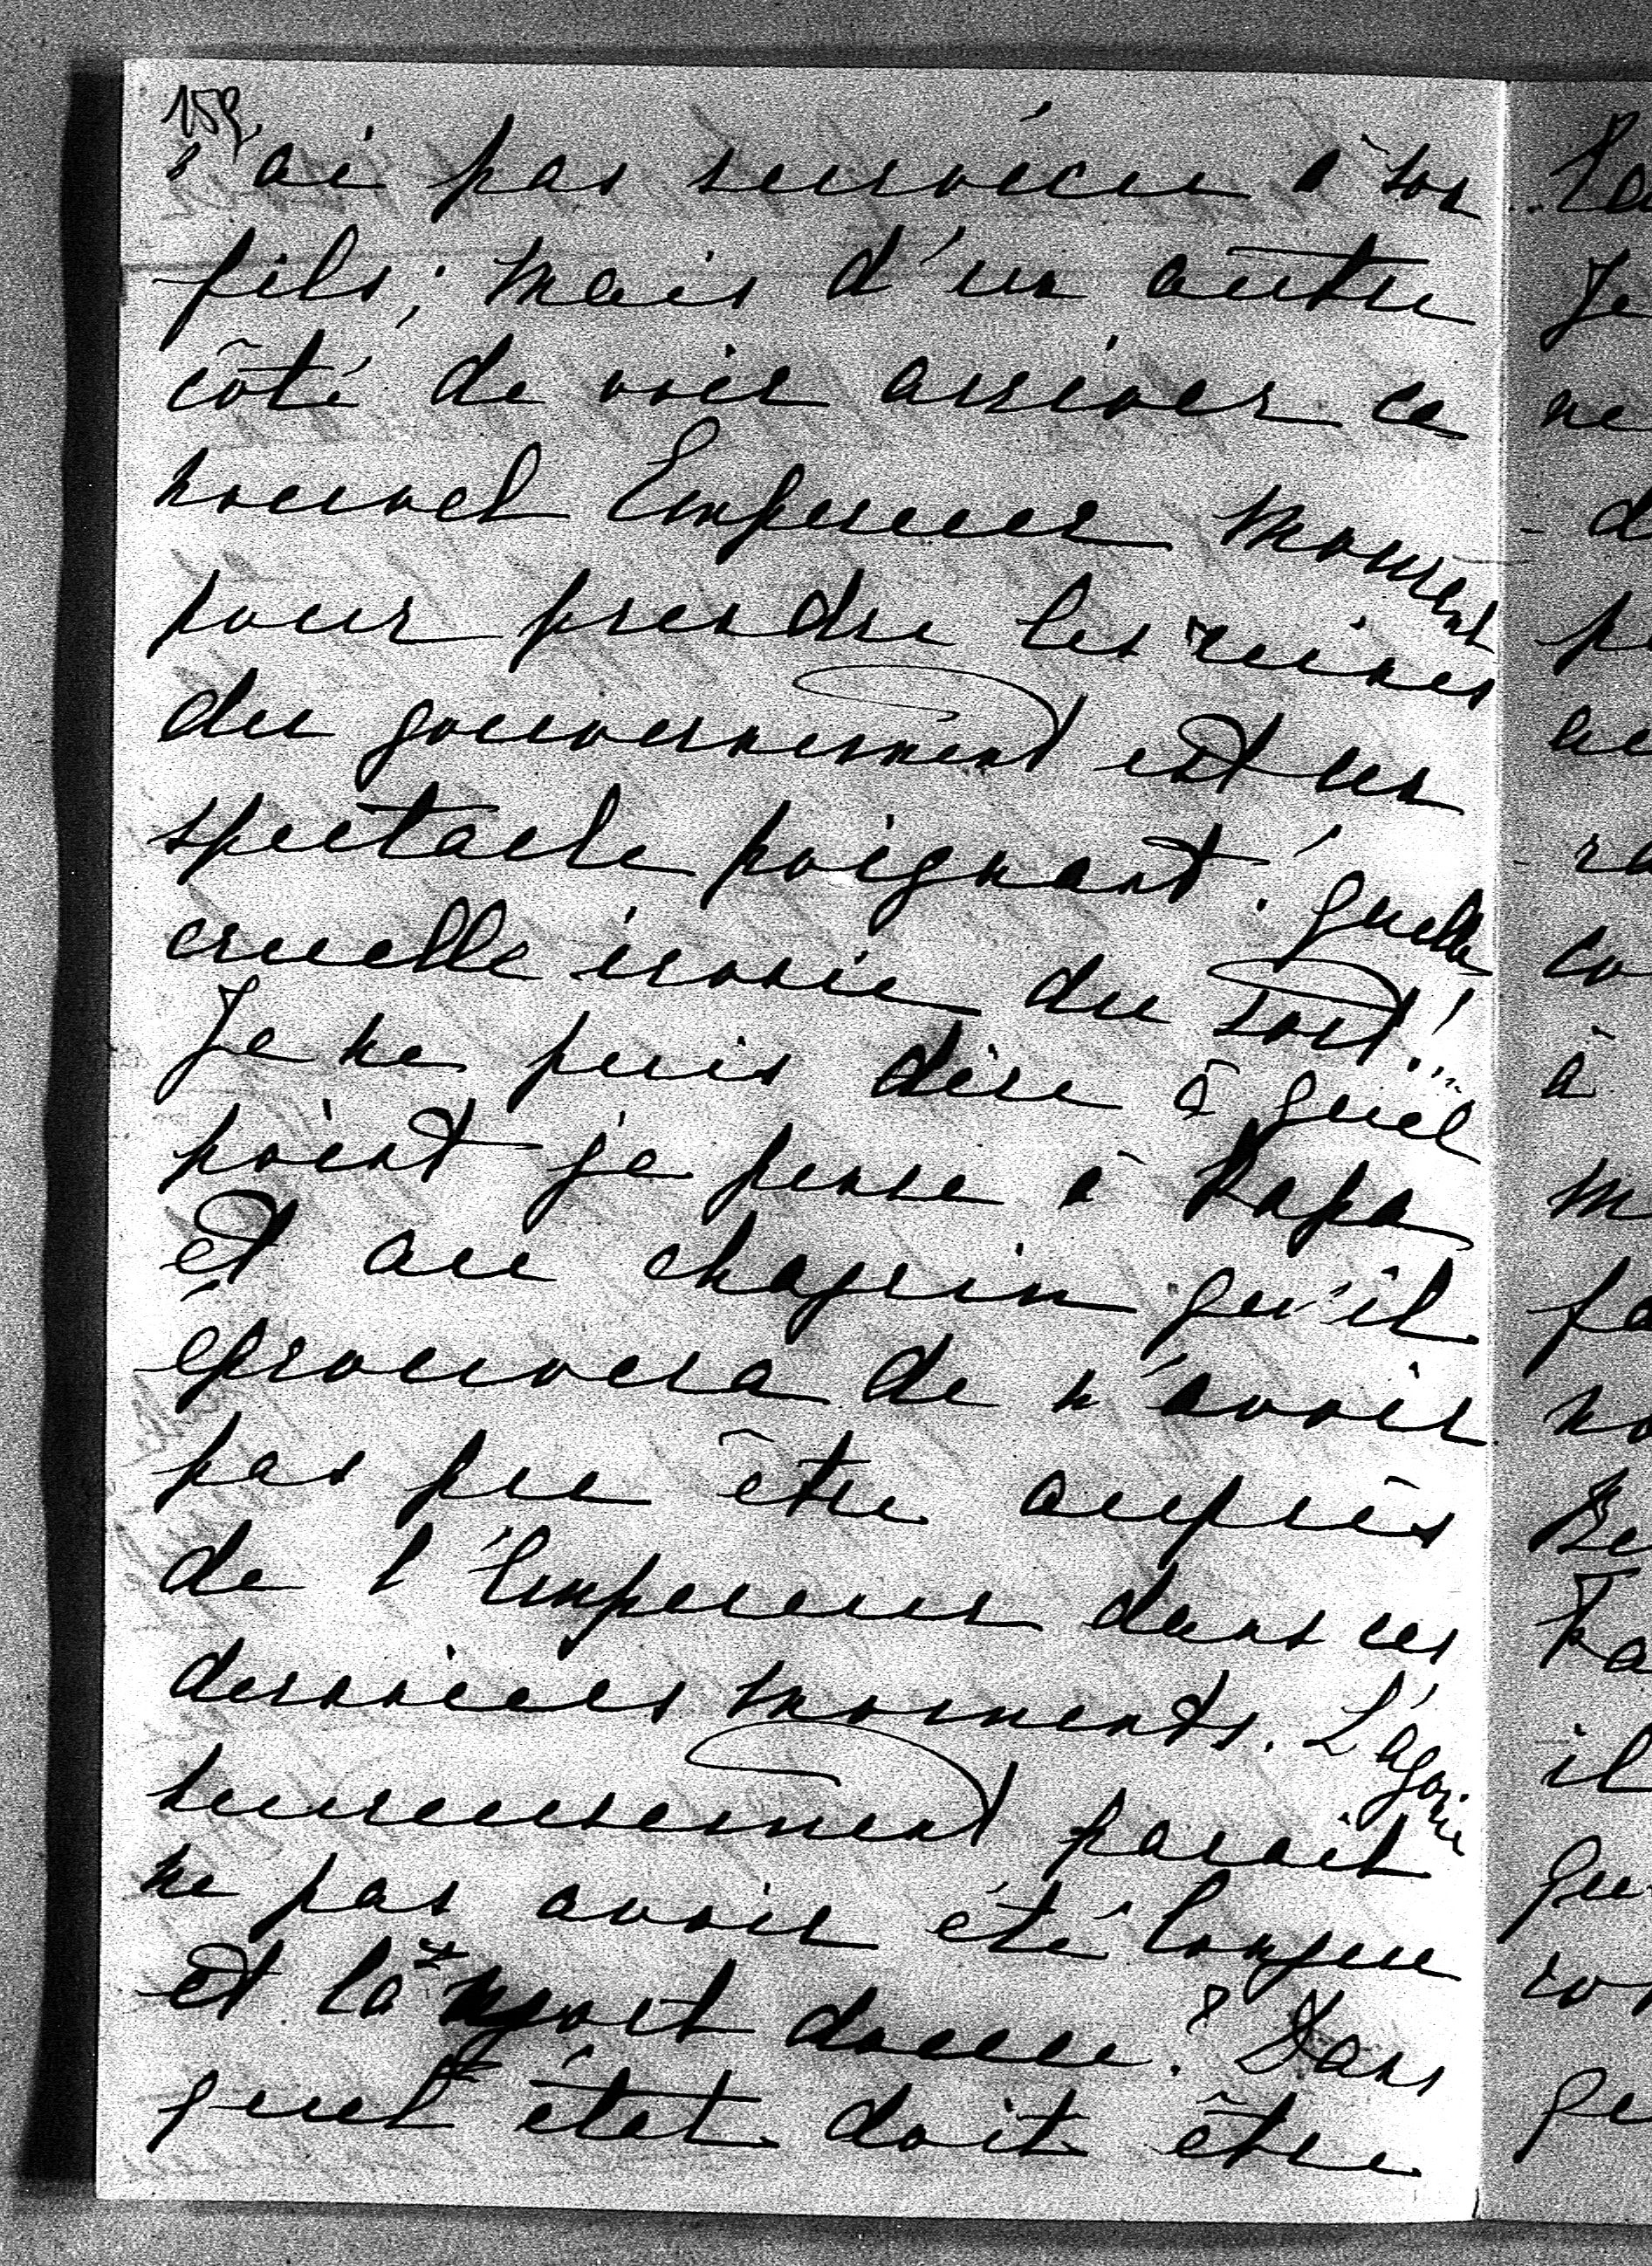 n'ai pas survécu à son
fils; mais d'un autre
côté de voir arriver ce
nouvel Empereur mourant
pour prendre les reines
du gouvernement est un
spectacle poignant! quelle
cruelle ironie du sort!...
Je ne puis dire à quel
point je pense à Papa
et au chagrin qu'il
éprouvera de n'avoir
pas pu être auprès
de l'Empereur dans ces
derniers moments. L'agonie
heureusement parait
ne pas avoir été longue
et la mort douce. Dans
quel état doit être